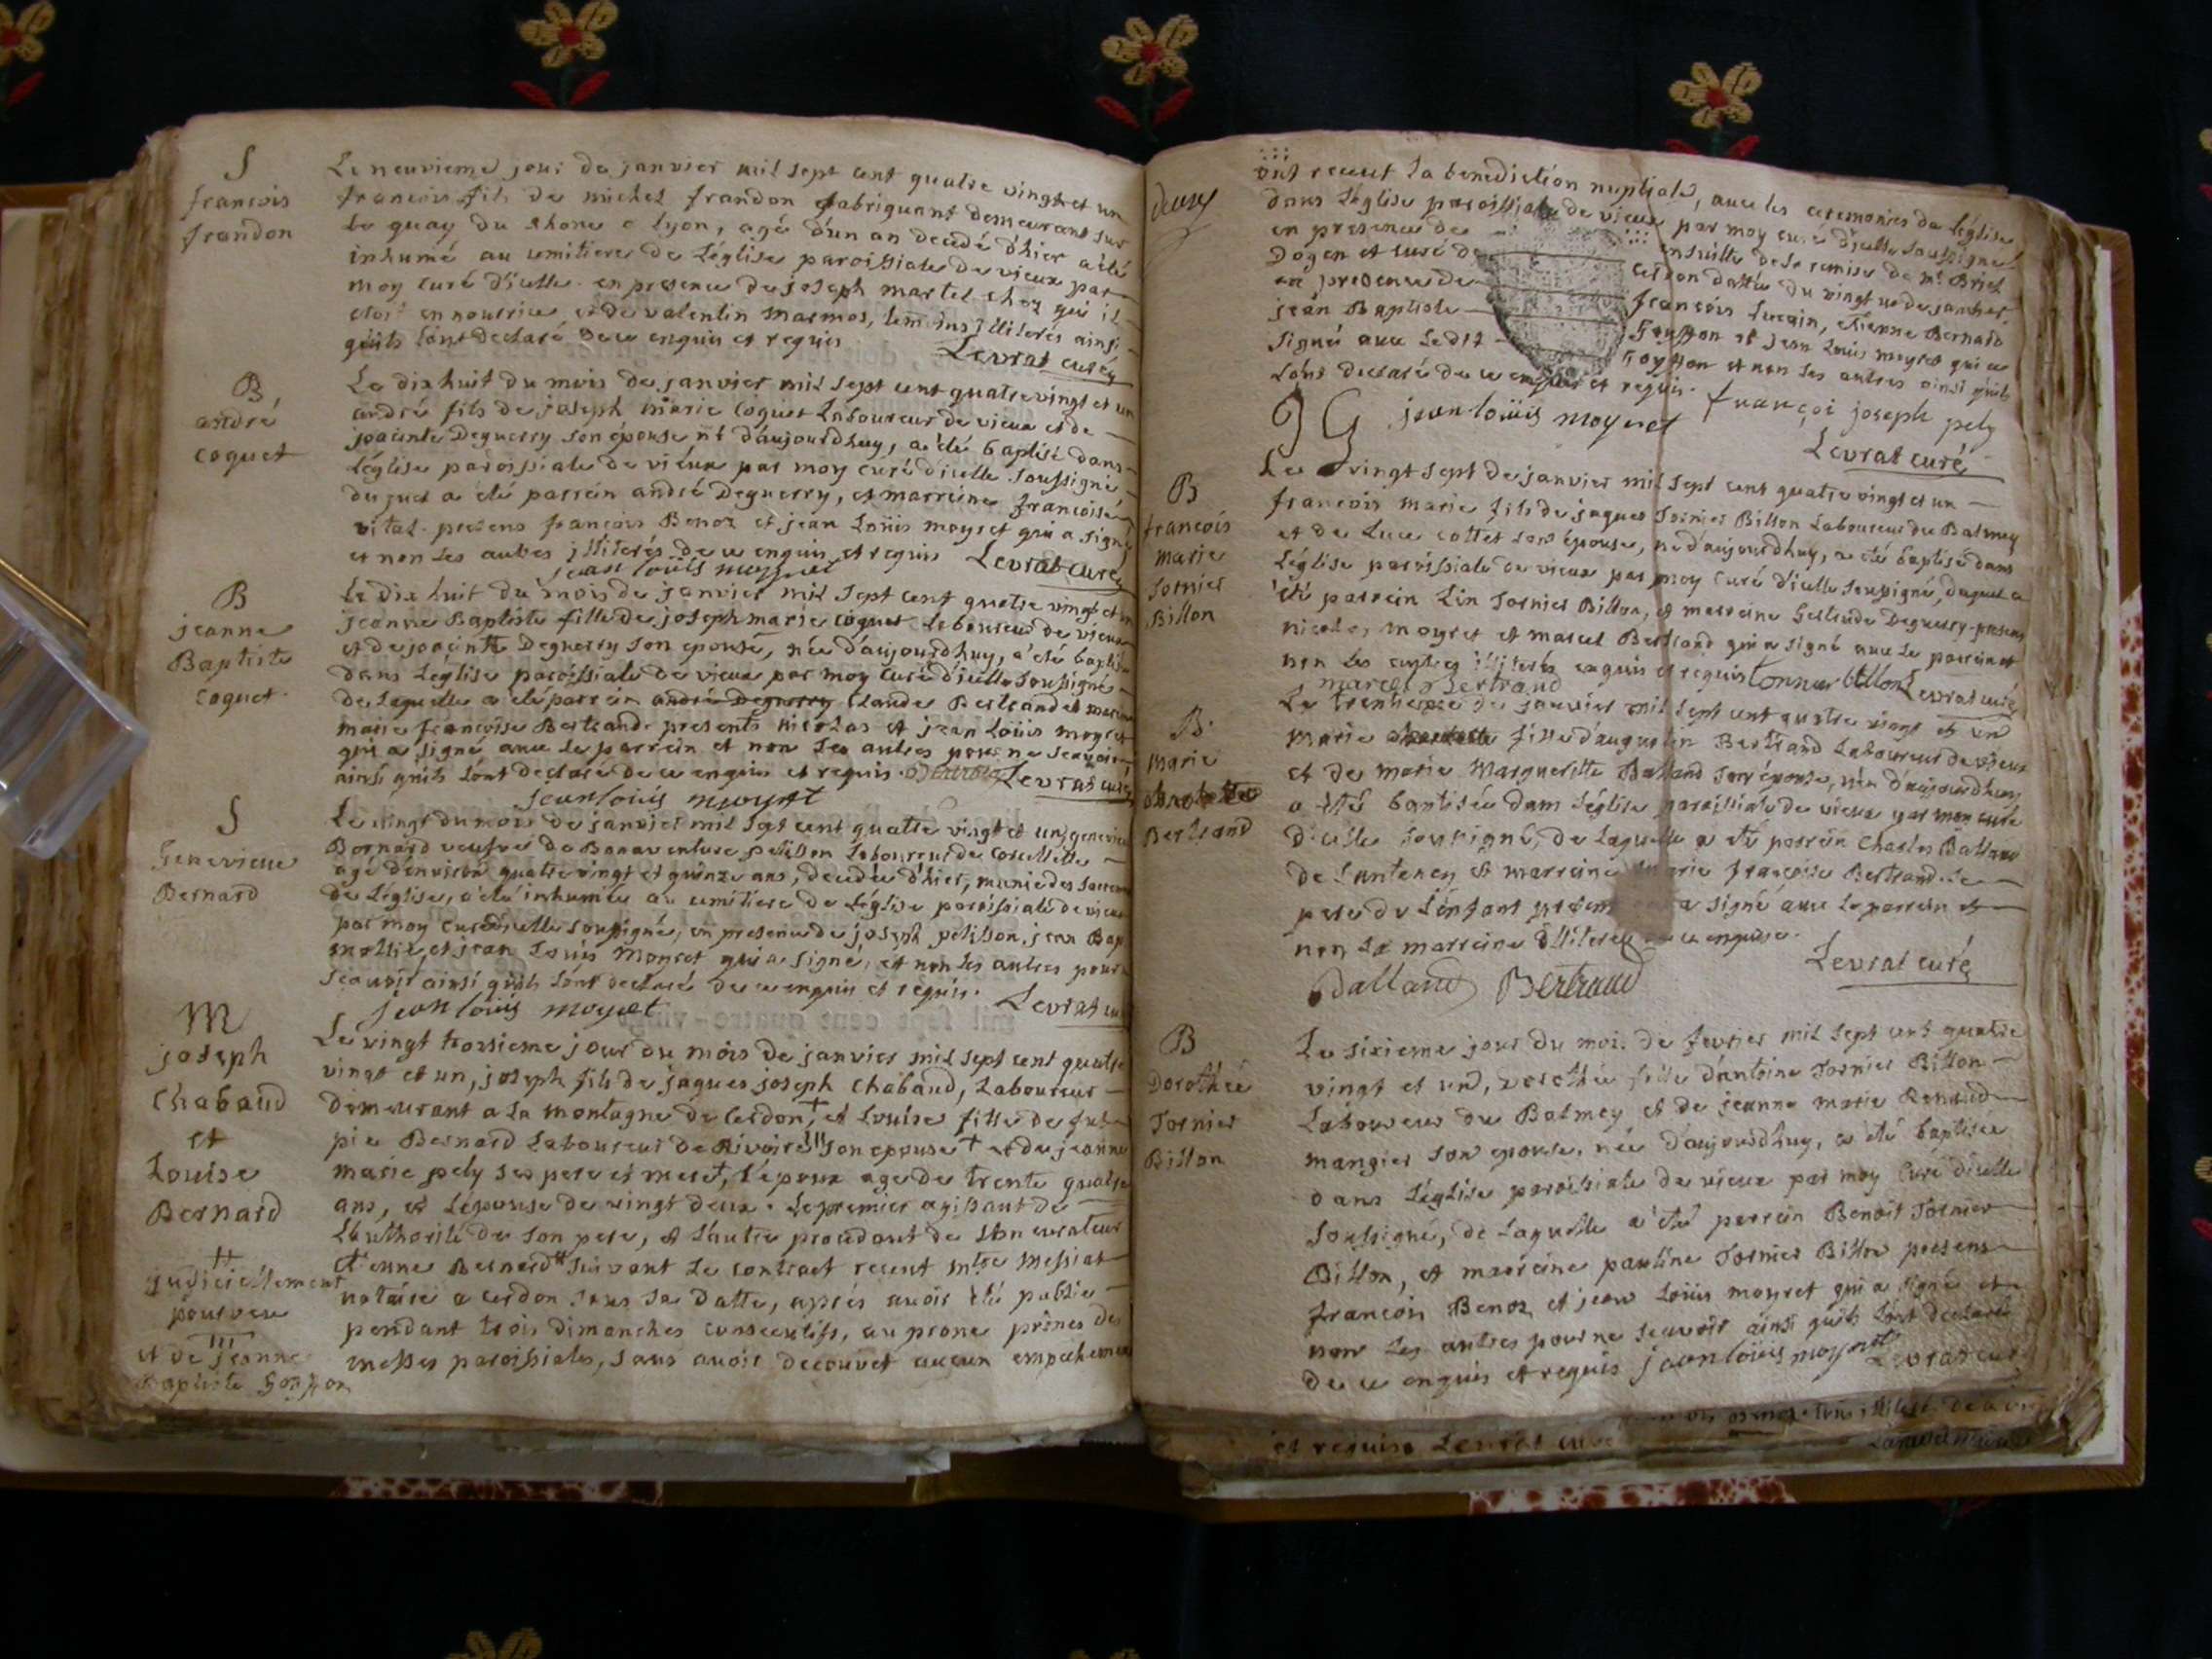 S
francois
frandon
Le neuvieme jour de janvier mil sept cent quatre vingt et un
francois fils de michel frandon fabriquant demeurant sur
le quay du rhone a lyon, agé d'un an decedé d'hier a été
inhumé au cemitiere de l'église paroissiale de vieux par
moy curé d'icelle. en presence de joseph martel chez qui il
etoit en nourrice et de valentin marmos, temoins illiterés ainsi
qu'ils l'ont declaré de ce enquis et requis
Levrat curé
B
andré
coquet
Le dix huit du mois de janvier mil sept cent quatre vingt et un
andré fils de joseph marie coquet Laboureur de vieux et de
jpacinte Deguerry son épouse né d'aujourdhuy, a été baptisé dans
l'église paroissiale de vieux par moy curé d'icelle soussigné,
duquel a été parrein andré Deguerry, et marreine francoise
vital. presens francois Benoz et jean Loüis moyret qui a signé
et non les autres illiterés de ce enquis et requis Levrat curé
jean loüis moyret
B
jeanne
Baptiste
coquet
Le dix huit du mois de janvier mil sept cent quatre vingt et un
jeanne Baptiste fille de joseph marie coquet Laboureur de vieux
et de jpacinte Deguerry son epouse, née d'aujourdhuy, a été baptisée
dans l'église paroissiale de vieux par moy curé d'icelle soussigné
de laquelle a été parrein andré Deguerry Claude Bertrand et marreine
marie francoise Bertrand. presents nicolas et jean Loüis moyret
qui a signé avec le parrein et non les autres pour ne scavoir,
ainsi qu'ils l'ont declaré de ce enquis et requis. Bertrand Levrat curé
jean loüis moyret
S
Genevieve
Bernard
Le vingt du mois de janvier mil sept cent quatre vingt et un, genevieve
Bernard veufve de Bonaventure pelisson Laboureur de
agé d'environ quatre vingt et quinze ans, decedée d'hier, munie des sacremens
de l'église, a été inhumée au cemitiere de l'église paroissiale de vieux
par moy curé d'icelle soussigné, en presence de joseph pelisson, jean Bap
mollie, et jean Louis moyret qui a signé, et non les autres pour
scavoir ainsi qu'ils l'ont declaré de ce enquis et requis.
jean loüis moyret Levrat cu
M
joseph
Chabaud
et
Louise
Bernard
Le vingt troisieme jour du mois de janvier mil sept cent quatre
vingt et un, joseph fils de jaques joseph Chabaud, Laboureur
demeurant a la montagne de Cerdon, et Louise fille de ful
pie Bernard Laboureur de Rivoire son epouse et de jeanne
marie pely ses pere et mere, l'époux age de trente quatre
ans, et l'épouse de vingt deux. Le premier agissant de
l'authorité de son pere, et l'autre procedant de son curateur
Etienne Bernard suivant le contract receut mtre Messiat
notaire a cerdon sous sa datte, aprés avoir été publié
pendant trois dimanches consecutifs, au prone prônes des
messes paroissiales, sans avoir decouvert aucun empechemen
††
judiciellement
pourveu
†††
et de jeanne
Baptiste Goyffon
deux
ont receut la benediction nuptiale, avec les ceremonies de l'église
dans l'église paroissiale de vieux par moy curé d'icelle soussigné
en presence de ensuitte de la remise de mr Briel
Dogen et curé de Cerdon dattée du vingt un de janvier
en presence de francois Lucain, Etienne Bernard
jean Baptiste Goyffon et jean Louis moyret qui a
signé avec ledit Goyffon et non les autres ainsi qu'ils
l'ont declaré de ce enquis et requis.
JG jean loüis moyret françoi joseph pely
Levrat curé
B
francois
marie
Tornier
Billon
Le vingt sept de janvier mil sept cent quatre vingt et un
francois marie fils de jaques Tornier Billon Laboureur du Balmey
et de Luce cottet son épouse, né d'aujourdhuy, a été baptisé dans
l'église paroissiale de vieux par moy curé d'icelle soussigné, duquel a
été parrein Lin Tornier Billon, et marreine Gertrude Deguerry. presens
nicolas moyret et marcel Bertrand qui a signé avec le parrein et
non les autres illiterés enquis et requis Tornier billon Levrat curé
marcel Bertrand
B.
Marie
Bertrand
Le trentieme de janvier mil sept cent quatre vingt et un
Marie fille d'augustin Bertrand Laboureur de vieux
et de marie Margueritte Balland son épouse, née d'aujourdhuy
a été baptisée dans l'église paroissiale de vieux par mon curé
d'icelle soussigné, de laquelle a été parrein Charles Balland
de Lanteney et marreine marie francoise Bertrand. Le
pere de l'enfant present a signé avec le parrein et
non la marreine illiteree de ce enquise.
Levrat curé
Balland Bertrand
B
Dorothée
Tornier
Billon
Le sixieme jour du mois de fevrier mil sept cent quatre
vingt et un, Dorothée fille d'antoine Tornier Billon
Laboureur du Balmey et de jeanne marie Renaud
mangier son epouse, née d'aujourdhuy, a été baptisée
dans l'église paroissiale de vieux par moy curé d'icelle
soussigné, de laquelle a été parrein Benoit Tornier
Billon, et marreine pauline Tornier Billon presens
francois Benoz et jean Loüis moyret qui a signé et
non les autres pour ne scavoir ainsi qu'ils l'ont declaré
de ce enquis et requis jean loüis moyret Levrat curé
et requis Levrat curé